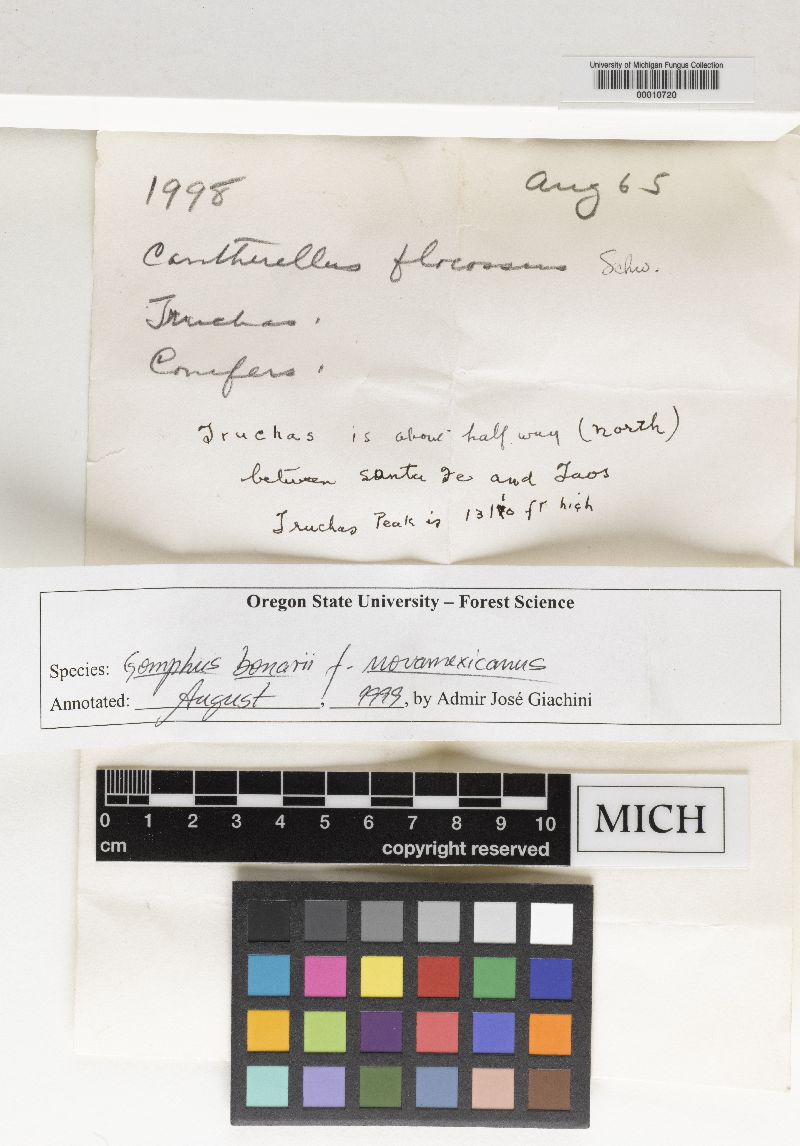 University of Michigan Fungus Collection
00010720
1998
Aug 65
Cantherellus flocossus Schw.
Truchas.
Conifers.
Truchas is about half way (north)
between Santa Fe and Taos
Truchas Peak is ft high
Oregon State University – Forest Science
Species: Gomphus bonarii f. novamexicanus
Annotated: August, 1999, by Admir José Giachini
0 1 2 3 4 5 6 7 8 9 10
cm
copyright reserved
MICH